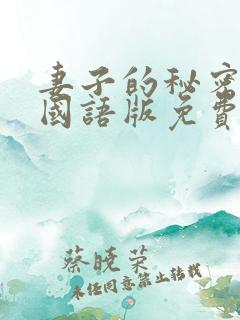 妻子的秘密
國語版免費
蔡曉荣
未经同意禁止转载